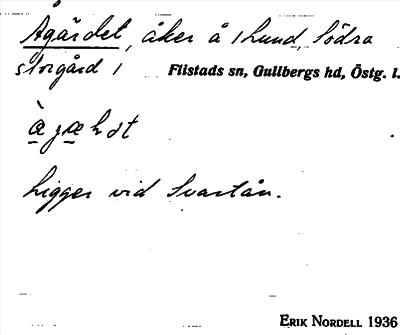 Ågärdet, åker å 1 Lund, Södra
storgård 1 Flistads sn, Gullbergs hd, Östg. l.
Ligger vid Svartån.
ERIK NORDELL 1936